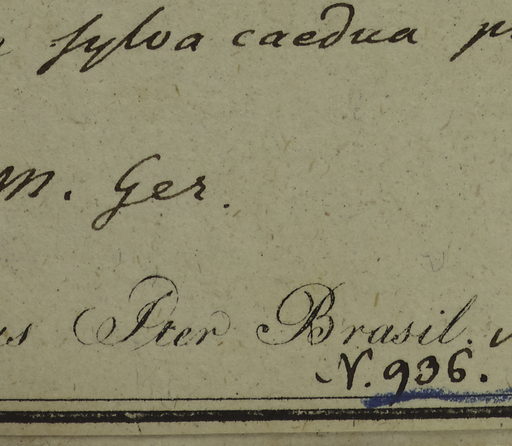 sylva caedua
M. Ger.
us Iter Brasil.
N. 936.